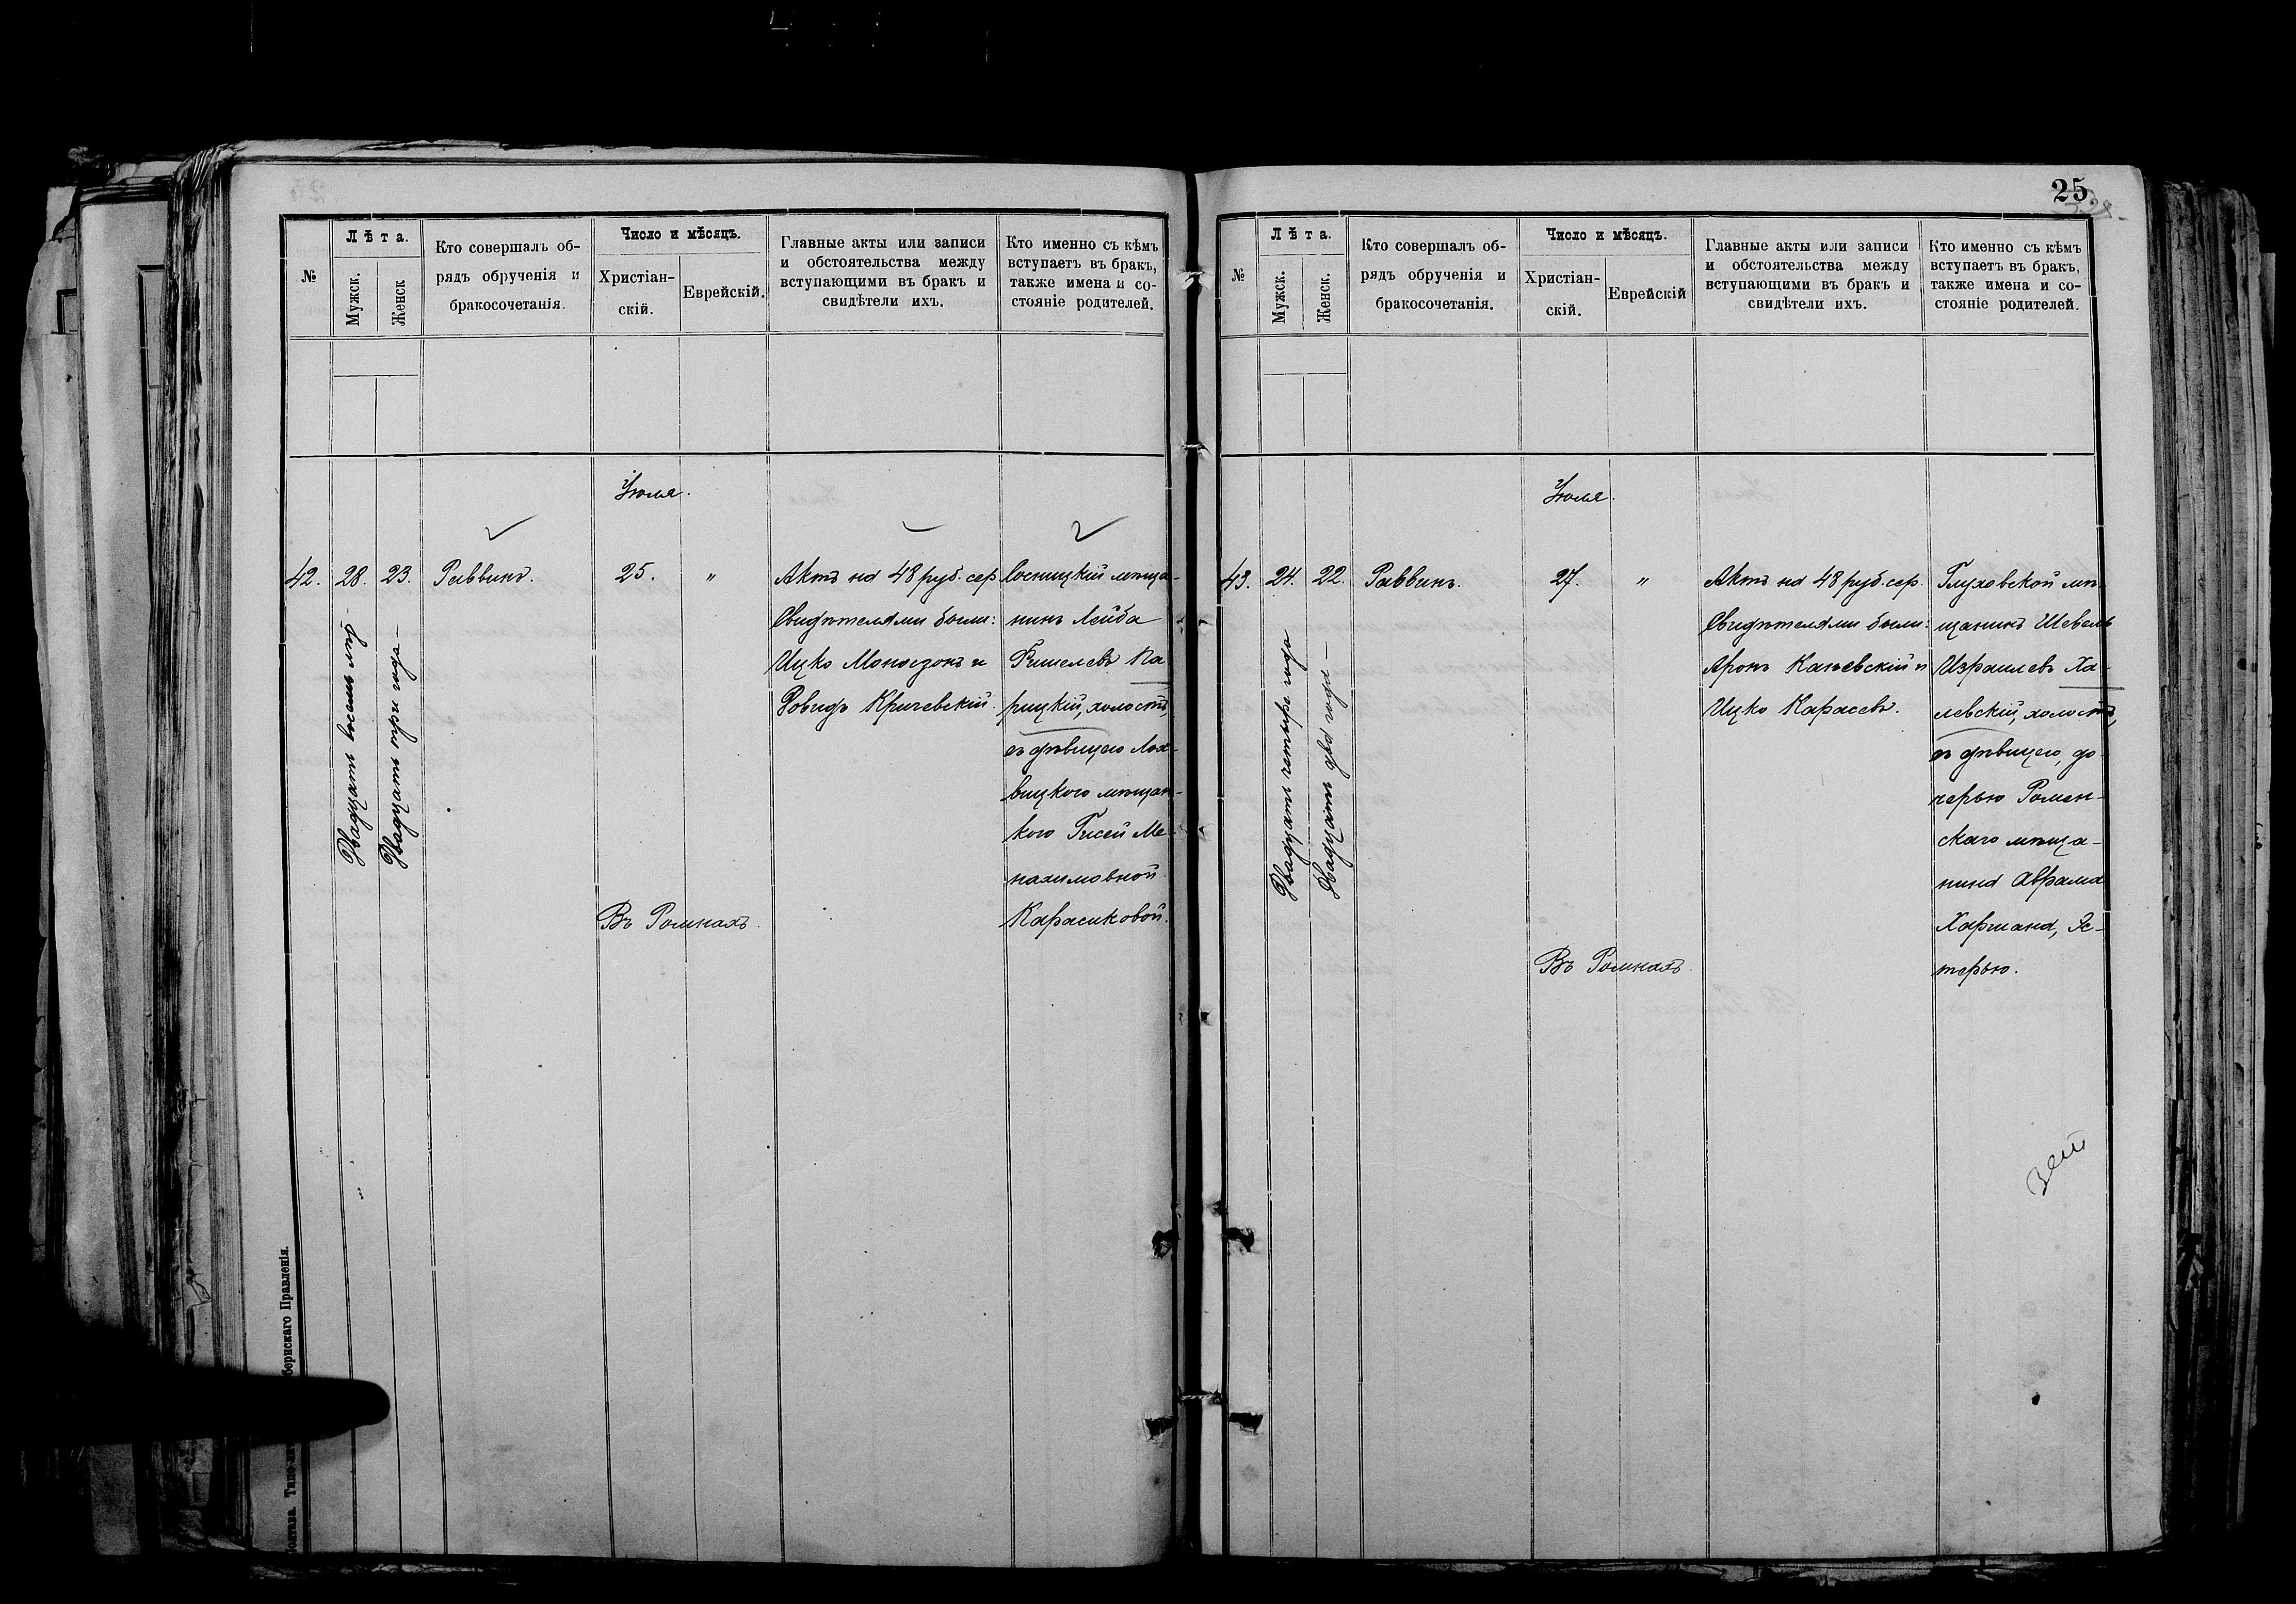 №
Лѣта.
Мужск.
Женск
Кто совершалъ об-
рядъ обрученія и
бракосочетанія.
Число и мѣсяцъ.
Христіан-
скій.
Еврейскій.
Главные акты или записи
и обстоятельства между
вступающими въ бракъ и
свидѣтели ихъ.
Кто именно съ кѣмъ
вступаетъ въ бракъ,
также имена и со-
стояніе родителей.
Іюля.
42.
28.
Двадцать восемь лѣтъ
23.
Двадцать три года —
Раввинъ.
25.
"
Въ Ромнахъ.
Актъ на 48 руб. сер
Свидѣтелями были:
Ицко Моносзонъ и
Довидъ Кричевскій.
Сосницкій мѣща-
нинъ Лейба
Фишелевъ Па
рицкій, холостъ,
съ дѣвицею Лох-
вицкого мѣщан-
кою Гисей Ме-
нахимовной
Карасиковой.
бернскаго Правленія.
25.
№
Лѣта.
Мужск.
Женск.
Кто совершалъ об-
рядъ обрученія и
бракосочетанія.
Число и мѣсяцъ.
Христіан-
скій.
Еврейскій
Главные акты или записи
и обстоятельства между
вступающими въ бракъ и
свидѣтели ихъ.
Кто именно съ кѣмъ
вступаетъ въ бракъ,
также имена и со-
стояніе родителей.
Іюля.
43.
24.
Двадцать четыре года
22.
Двадцать два года —
Раввинъ.
27.
"
Въ Ромнахъ.
Актъ на 48 руб. сер.
Свидѣтелями были:
Аронъ Каневскій и
Ицко Карасевъ.
Глуховской мѣ-
щанинъ Шевель
Израилевъ Ха-
левскій, холостъ,
съ дѣвицею, до-
черью Ромен-
скаго мѣща-
нина Аврама
Харшана, Эс-
терью.